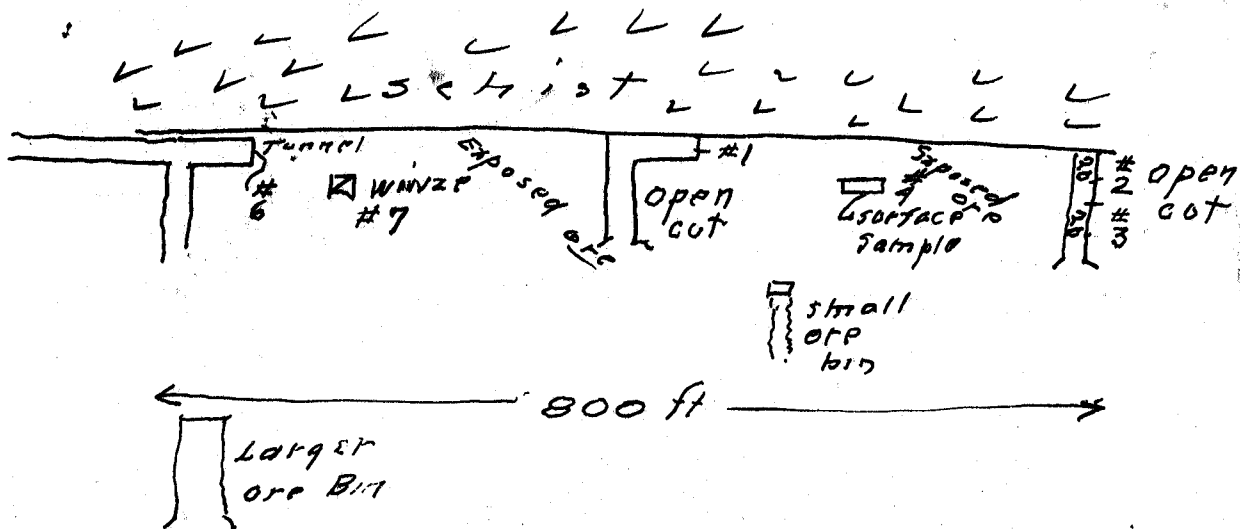 schist
Tunnel
#6
Winze
#7
Exposed ore
open
cut
#1
Exposed ore
#4
surface
sample
20
#2
20
#3
open
cut
small
ore
bin
800 ft
Larger
ore Bin